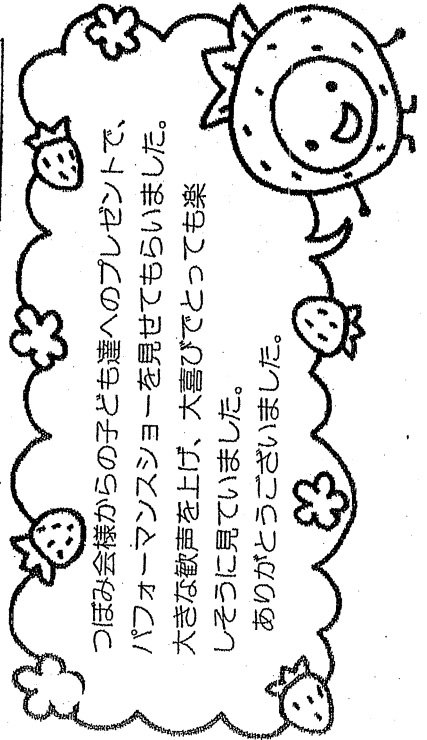 つぼみ会様からの子ども達へのプレゼントで、
パフォーマンスショーを見せてもらいました。
大きな歓声を上げ、大喜びでとっても楽
しそうに見ていました。
ありがとうございました。